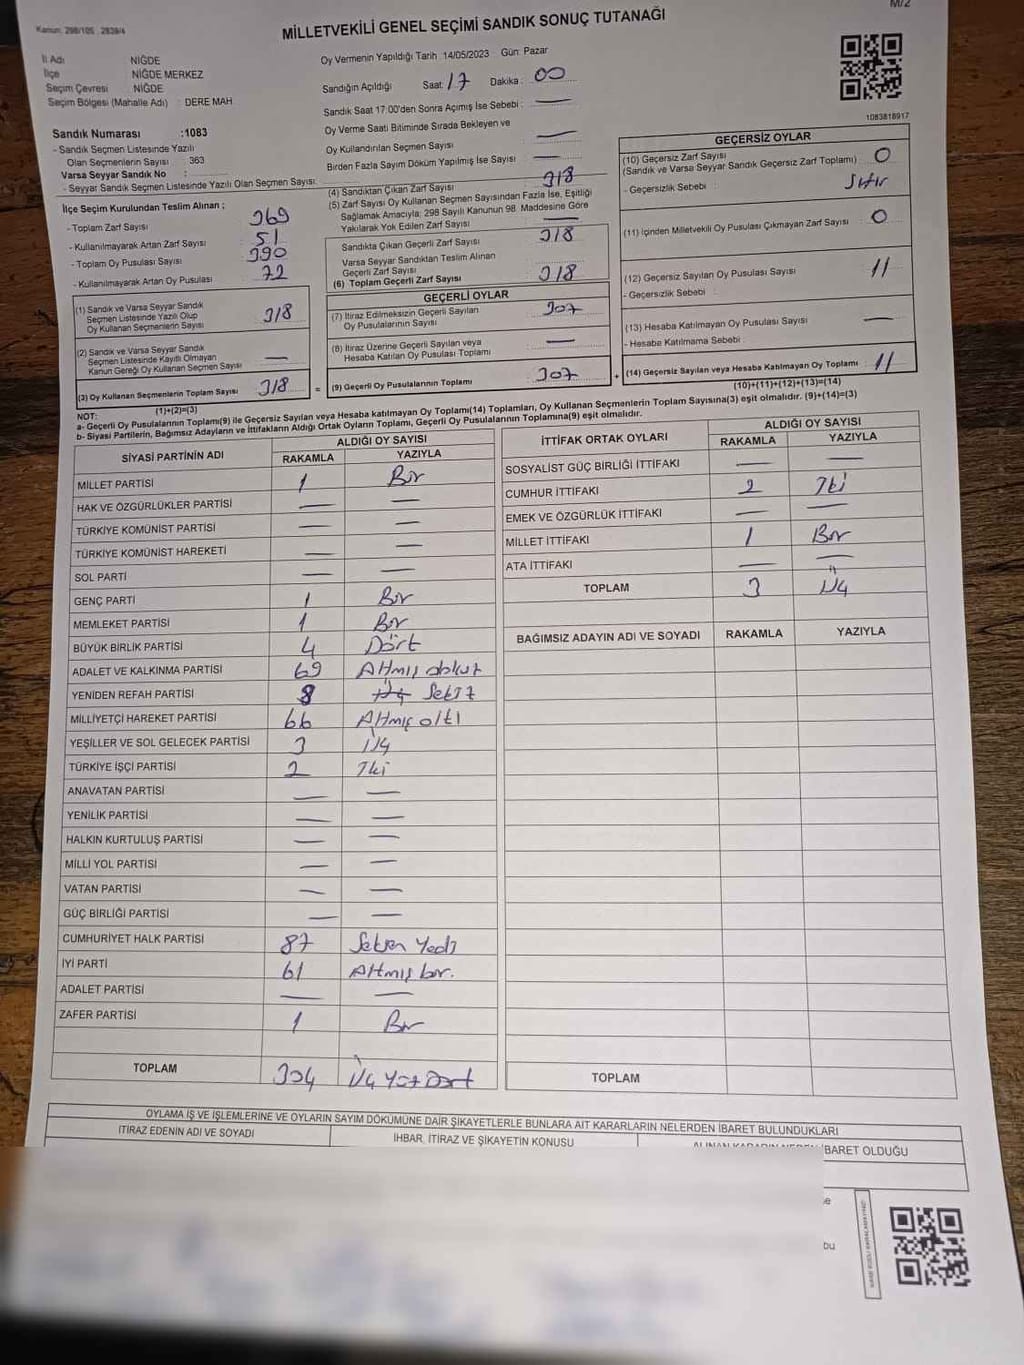 M/2
Kanun: 298/105 , 2839/4
MİLLETVEKİLİ GENEL SEÇİMİ SANDIK SONUÇ TUTANAĞI
İl Adı NİĞDE
İlçe NİĞDE MERKEZ
Seçim Çevresi NİĞDE
Seçim Bölgesi (Mahalle Adı) : DERE MAH.
Sandık Numarası :1083
- Sandık Seçmen Listesinde Yazılı
Olan Seçmenlerin Sayısı : 363
Varsa Seyyar Sandık No :
- Seyyar Sandık Seçmen Listesinde Yazılı Olan Seçmen Sayısı:
Oy Vermenin Yapıldığı Tarih :14/05/2023 Gün: Pazar
Sandığın Açıldığı Saat: 17 Dakika : 00
Sandık Saat 17:00'den Sonra Açımış İse Sebebi : —
Oy Verme Saati Bitiminde Sırada Bekleyen ve
Oy Kullandırılan Seçmen Sayısı —
Birden Fazla Sayım Döküm Yapılmış İse Sayısı —
1083818917
İlçe Seçim Kurulundan Teslim Alınan ;
- Toplam Zarf Sayısı 369
- Kullanılmayarak Artan Zarf Sayısı 51
- Toplam Oy Pusulası Sayısı 390
- Kullanılmayarak Artan Oy Pusulası 72
(1) Sandık ve Varsa Seyyar Sandık
Seçmen Listesinde Yazılı Olup
Oy Kullanan Seçmenlerin Sayısı 318
(2) Sandık ve Varsa Seyyar Sandık
Seçmen Listesinde Kayıtlı Olmayan
Kanun Gereği Oy Kullanan Seçmen Sayısı —
(3) Oy Kullanan Seçmenlerin Toplam Sayısı 318
(1)+(2)=(3)
(4) Sandıktan Çıkan Zarf Sayısı 318
(5) Zarf Sayısı Oy Kullanan Seçmen Sayısından Fazla İse, Eşitliği
Sağlamak Amacıyla; 298 Sayılı Kanunun 98. Maddesine Göre
Yakılarak Yok Edilen Zarf Sayısı —
Sandıkta Çıkan Geçerli Zarf Sayısı 318
Varsa Seyyar Sandıktan Teslim Alınan
Geçerli Zarf Sayısı
(6) Toplam Geçerli Zarf Sayısı 318
GEÇERLİ OYLAR
(7) İtiraz Edilmeksizin Geçerli Sayılan
Oy Pusulalarının Sayısı 307
(8) İtiraz Üzerine Geçerli Sayılan veya
Hesaba Katılan Oy Pusulası Toplamı —
= (9) Geçerli Oy Pusulalarının Toplamı 307
GEÇERSİZ OYLAR
(10) Geçersiz Zarf Sayısı 0
(Sandık ve Varsa Seyyar Sandık Geçersiz Zarf Toplamı)
- Geçersizlik Sebebi : Sıfır
(11) İçinden Milletvekili Oy Pusulası Çıkmayan Zarf Sayısı 0
(12) Geçersiz Sayılan Oy Pusulası Sayısı 11
- Geçersizlik Sebebi :
(13) Hesaba Katılmayan Oy Pusulası Sayısı —
- Hesaba Katılmama Sebebi :
+ (14) Geçersiz Sayılan veya Hesaba Katılmayan Oy Toplamı 11
(10)+(11)+(12)+(13)=(14)
NOT:
a- Geçerli Oy Pusulalarının Toplamı(9) ile Geçersiz Sayılan veya Hesaba katılmayan Oy Toplamı(14) Toplamları, Oy Kullanan Seçmenlerin Toplam Sayısına(3) eşit olmalıdır. (9)+(14)=(3)
b- Siyasi Partilerin, Bağımsız Adayların ve İttifakların Aldığı Ortak Oyların Toplamı, Geçerli Oy Pusulalarının Toplamına(9) eşit olmalıdır.
SİYASİ PARTİNİN ADI ALDIĞI OY SAYISI
RAKAMLA YAZIYLA
MİLLET PARTİSİ 1 Bir
HAK VE ÖZGÜRLÜKLER PARTİSİ — —
TÜRKİYE KOMÜNİST PARTİSİ — —
TÜRKİYE KOMÜNİST HAREKETİ — —
SOL PARTİ — —
GENÇ PARTİ 1 Bir
MEMLEKET PARTİSİ 1 Bir
BÜYÜK BİRLİK PARTİSİ 4 Dört
ADALET VE KALKINMA PARTİSİ 69 Altmış dokuz
YENİDEN REFAH PARTİSİ 8 Sekiz
MİLLİYETÇİ HAREKET PARTİSİ 66 Altmış altı
YEŞİLLER VE SOL GELECEK PARTİSİ 3 Üç
TÜRKİYE İŞÇİ PARTİSİ 2 İki
ANAVATAN PARTİSİ — —
YENİLİK PARTİSİ — —
HALKIN KURTULUŞ PARTİSİ — —
MİLLİ YOL PARTİSİ — —
VATAN PARTİSİ — —
GÜÇ BİRLİĞİ PARTİSİ — —
CUMHURİYET HALK PARTİSİ 87 Seksen Yedi
İYİ PARTİ 61 Altmış bir.
ADALET PARTİSİ — —
ZAFER PARTİSİ 1 Bir
TOPLAM 304 Üç Yüz Dört
İTTİFAK ORTAK OYLARI ALDIĞI OY SAYISI
RAKAMLA YAZIYLA
SOSYALİST GÜÇ BİRLİĞİ İTTİFAKI — —
CUMHUR İTTİFAKI 2 İki
EMEK VE ÖZGÜRLÜK İTTİFAKI — —
MİLLET İTTİFAKI 1 Bir
ATA İTTİFAKI — —
TOPLAM 3 Üç
BAĞIMSIZ ADAYIN ADI VE SOYADI RAKAMLA YAZIYLA
TOPLAM
OYLAMA İŞ VE İŞLEMLERİNE VE OYLARIN SAYIM DÖKÜMÜNE DAİR ŞİKAYETLERLE BUNLARA AİT KARARLARIN NELERDEN İBARET BULUNDUKLARI
İTİRAZ EDENİN ADI VE SOYADI İHBAR, İTİRAZ VE ŞİKAYETİN KONUSU ALINAN KARARIN NEDEN İBARET OLDUĞU
bu